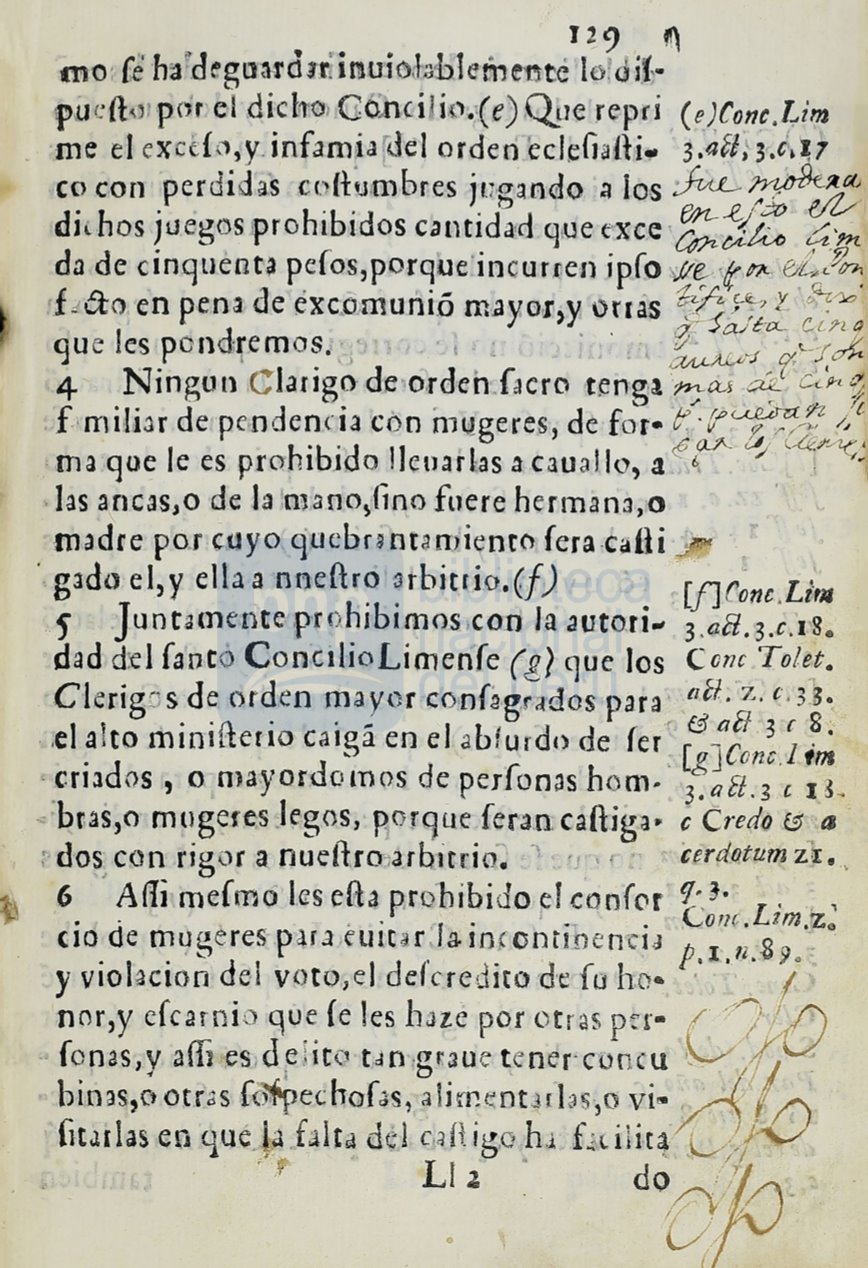 129
mo se ha deguardar inuiolablemente lo dis-
puesto por el dicho Concilio.(e) Que repri
me el exceso,y infamia del orden eclesiasti-
co con perdidas costumbres jugando a los
dichos juegos prohibidos cantidad que exce
da de cinquenta pesos,porque incurren ipso
facto en pena de excomunió mayor,y otras
que les pondremos.
4 Ningun Clarigo de orden sacro tenga
f miliar de pendencia con mugeres, de for-
ma que le es prohibido lleuarlas a cauallo, a
las ancas,o de la mano,sino fuere hermana,o
madre por cuyo quebrantamiento sera casti
gado el,y ella a nnestro arbitrio.(f)
5 Juntamente prohibimos con la autori-
dad del santo Concilio Limense (g) que los
Clerigos de orden mayor consagrados para
el alto ministerio caigã en el absurdo de ser
criados , o mayordomos de personas hom-
bras,o mugeres legos, porque seran castiga-
dos con rigor a nuestro arbitrio.
6 Assi mesmo les esta prohibido el consor
cio de mugeres para euitar la incontinencia
y violacion del voto,el descredito de su ho-
nor,y escarnio que se les haze por otras per-
sonas,y assi es delito tan graue tener concu
binas,o otras sospechosas, alimentarlas,o vi-
sitarlas en que la falta del castigo ha facilita
Ll 2 do
(e)Conc.Lim
3.act,3.c.17
fue modera
en esto est
Concilio lim
se por el Pon
tifice, y
q hasta cinq
aureos q son
mas de cinq
puedan
[f]Conc.Lim
3.act.3.c.18.
Conc Tolet.
act. 2. c 33.
& act 3 c 8.
[g]Conc.Lim
3.act.3 c 18.
c Credo & a
cerdotum 21.
q.3.
Conc.Lim.2.
p.1.n.89.